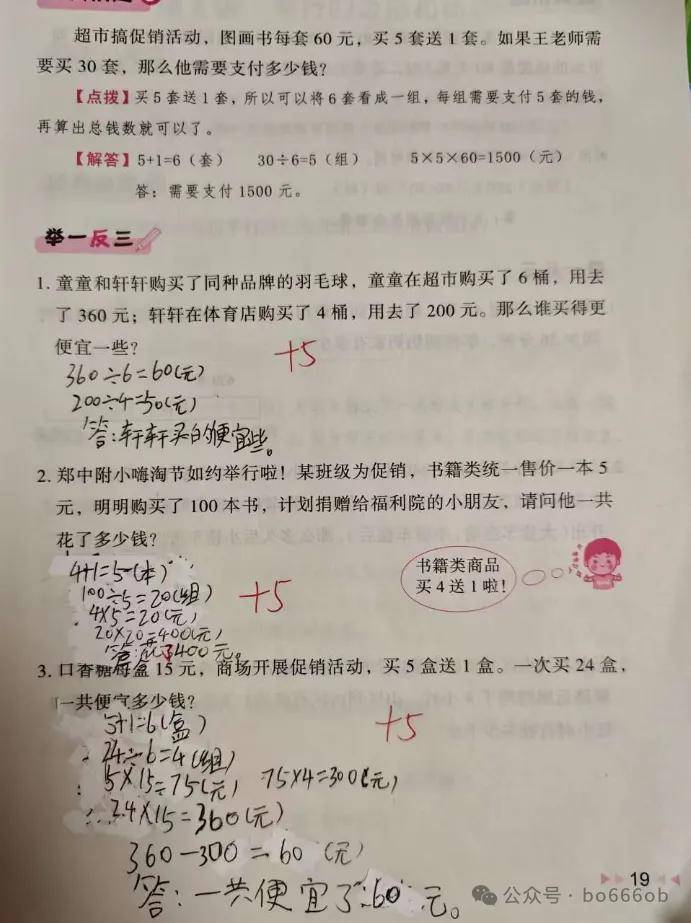 超市搞促销活动，图画书每套60元，买5套送1套。如果王老师需
要买30套，那么他需要支付多少钱？
【点拨】买5套送1套，所以可以将6套看成一组，每组需要支付5套的钱，
再算出总钱数就可以了。
【解答】5+1=6（套） 30÷6=5（组） 5×5×60=1500（元）
答：需要支付1500元。
举一反三
1. 童童和轩轩购买了同种品牌的羽毛球，童童在超市购买了6桶，用去
了360元；轩轩在体育店购买了4桶，用去了200元。那么谁买得更
便宜一些？
+5
360÷6=60(元)
200÷4=50(元)
答:轩轩买的便宜些。
2. 郑中附小嗨淘节如约举行啦！某班级为促销，书籍类统一售价一本5
元，明明购买了100本书，计划捐赠给福利院的小朋友，请问他一共
花了多少钱？
书籍类商品
买4送1啦！
4+1=5(本)
100÷5=20(组)
+5
4×5=20(元)
20×20=400(元)
答:花了400元。
3. 口香糖每盒15元，商场开展促销活动，买5盒送1盒。一次买24盒，
一共便宜多少钱？
5+1=6(盒)
+5
24÷6=4(组)
5×15=75(元) 75×4=300(元)
24×15=360(元)
360-300=60(元)
答:一共便宜了60元。
19
公众号·bo666ob